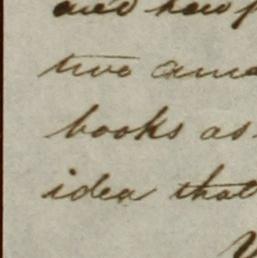 and how
two
books as
idea that